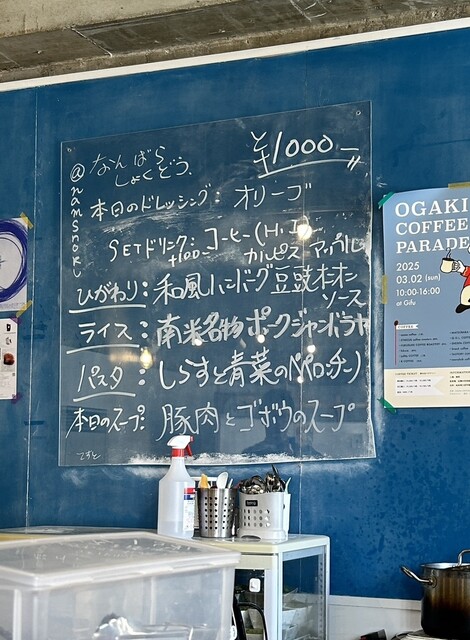 @namsnoku
なんばら
しょくどう
¥1000-
本日のドレッシング: オリーブ
SETドリンク: コーヒー(H・I)
+100- カルピス アップル
ひがわり: 和風ハンバーグ豆豉
ソース
ライス: 南米名物ポークジャンバラヤ
パスタ: しらすと青菜のペペロンチーノ
本日のスープ: 豚肉とゴボウのスープ
ですと
OGAKI
COFFEE
PARADE
2025
03.02 (sun)
10:00-16:00
at Gifu